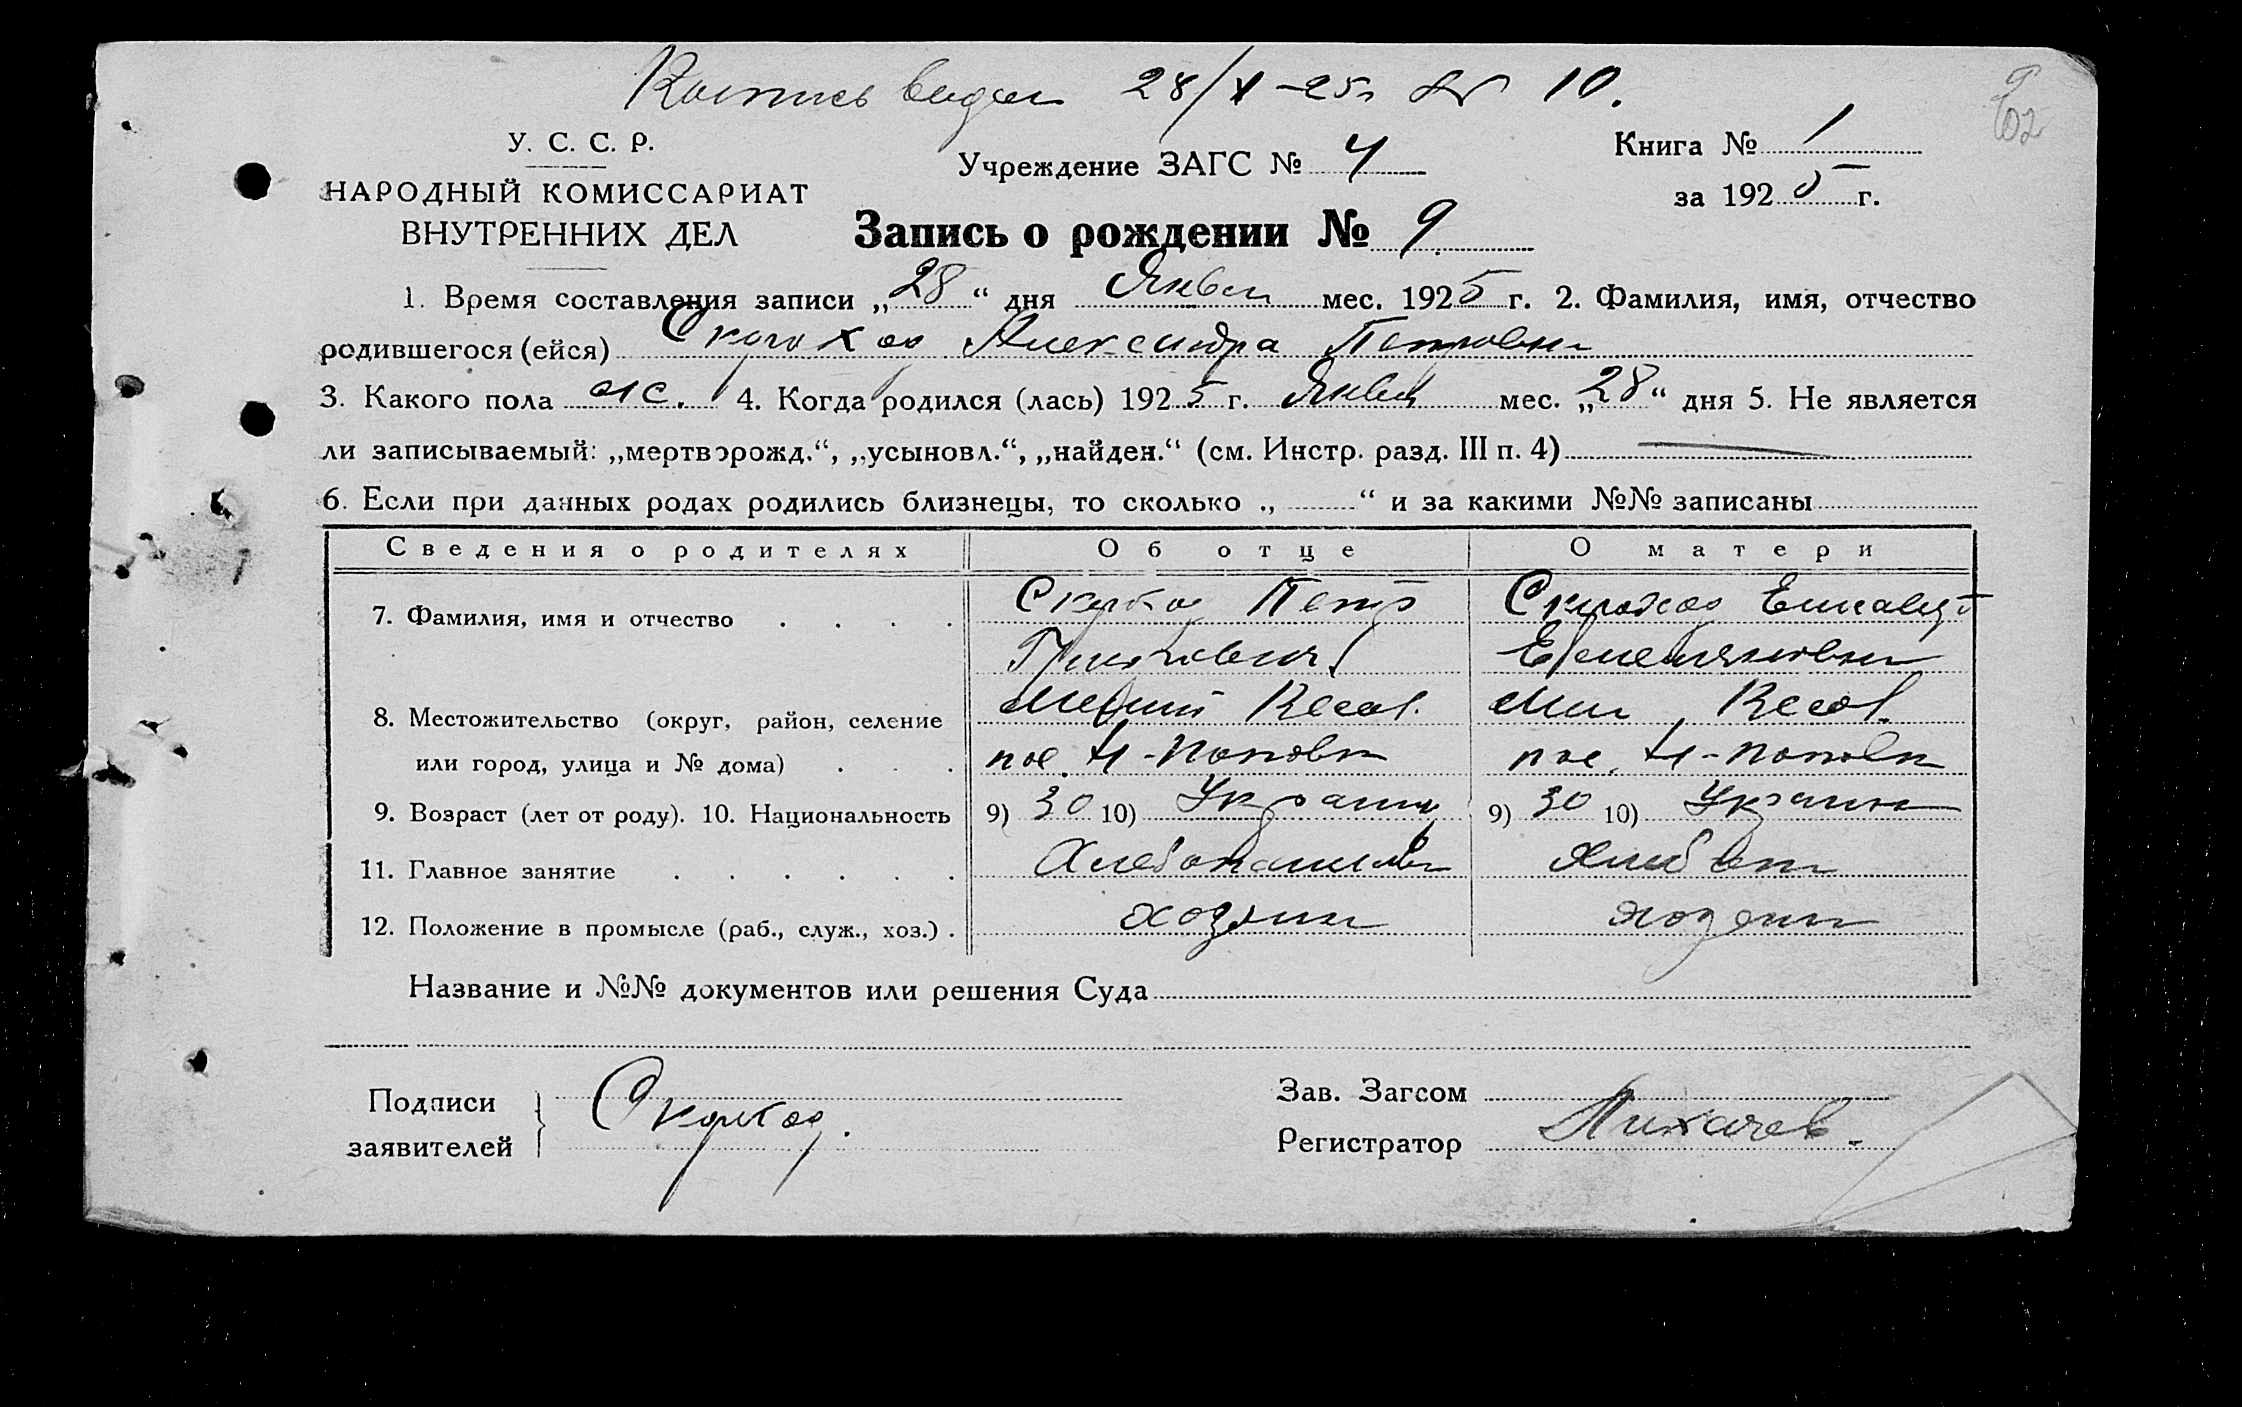 28/X-25 № 10.
У. С. С. Р.
НАРОДНЫЙ КОМИССАРИАТ
ВНУТРЕННИХ ДЕЛ
Учреждение ЗАГС № 4
Книга № 1
за 1925 г.
Запись о рождении № 9
1. Время составления записи „28“ дня мес. 1925 г. 2. Фамилия, имя, отчество
родившегося (ейся) Скороход Александра Петровна
3. Какого пола 4. Когда родился (лась) 1925 г. мес. „28“ дня 5. Не является
ли записываемый: „мертворожд.“, „усыновл.“, „найден.“ (см. Инстр. разд. III п. 4)
6. Если при данных родах родились близнецы, то сколько „ “ и за какими №№ записаны
Сведения о родителях Об отце О матери
7. Фамилия, имя и отчество Скороход Петр Скороход Елисавет
Емельяновна
8. Местожительство (округ, район, селение
или город, улица и № дома) пос. Н-Поповка пос. Н-Поповка
9. Возраст (лет от роду). 10. Национальность 9) 30 10) Украин 9) 30 10) Украин
11. Главное занятие
12. Положение в промысле (раб., служ., хоз.) хозяин
Название и №№ документов или решения Суда
Подписи
заявителей
Скороход.
Зав. Загсом
Регистратор Лихачев.